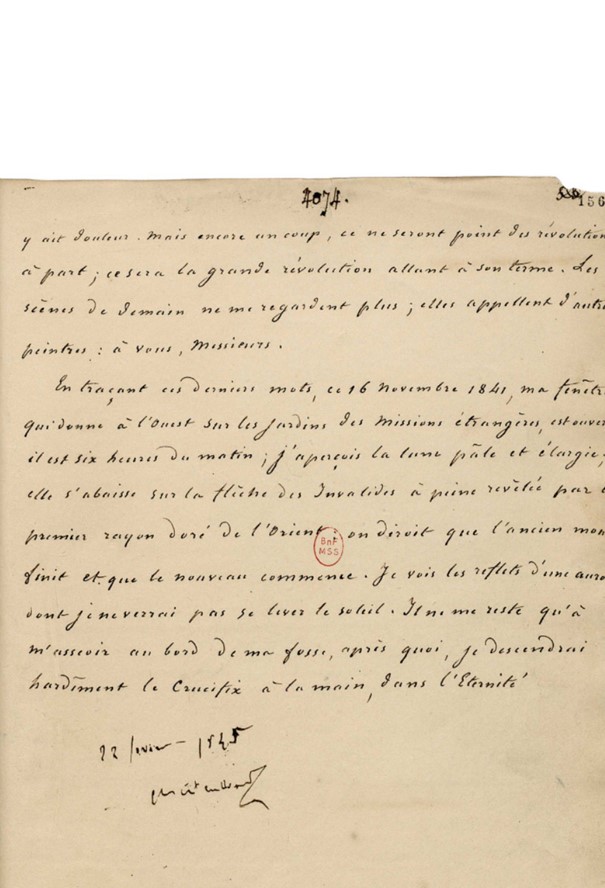 4074.
156
y ait douleur. mais encore un coup, ce ne seront point des révolution
à part ; ce sera la grande révolution allant à son terme. Les
scènes de demain ne me regardent plus ; elles appellent d'autre
peintres : à vous, Messieurs.
En traçant ces derniers mots, ce 16 Novembre 1841, ma fenêtr
qui donne à l'Ouest sur les jardins des Missions étrangères, est ouver
il est six heures du matin ; j'aperçois la lune pâle et élargie ;
elle s'abaisse sur la flèche des Invalides à peine revêlée par
premier rayon doré de l'Orient : on diroit que l'ancien mon
BnF
MSS
finit et que le nouveau commence. Je vois les reflets d'une auro
dont je ne verrai pas se lever le soleil. Il ne me reste qu'à
m'asseoir au bord de ma fosse, après quoi, je descendrai
hardîment le Crucifix à la main, dans l'Eternité
22 fevrier 1845